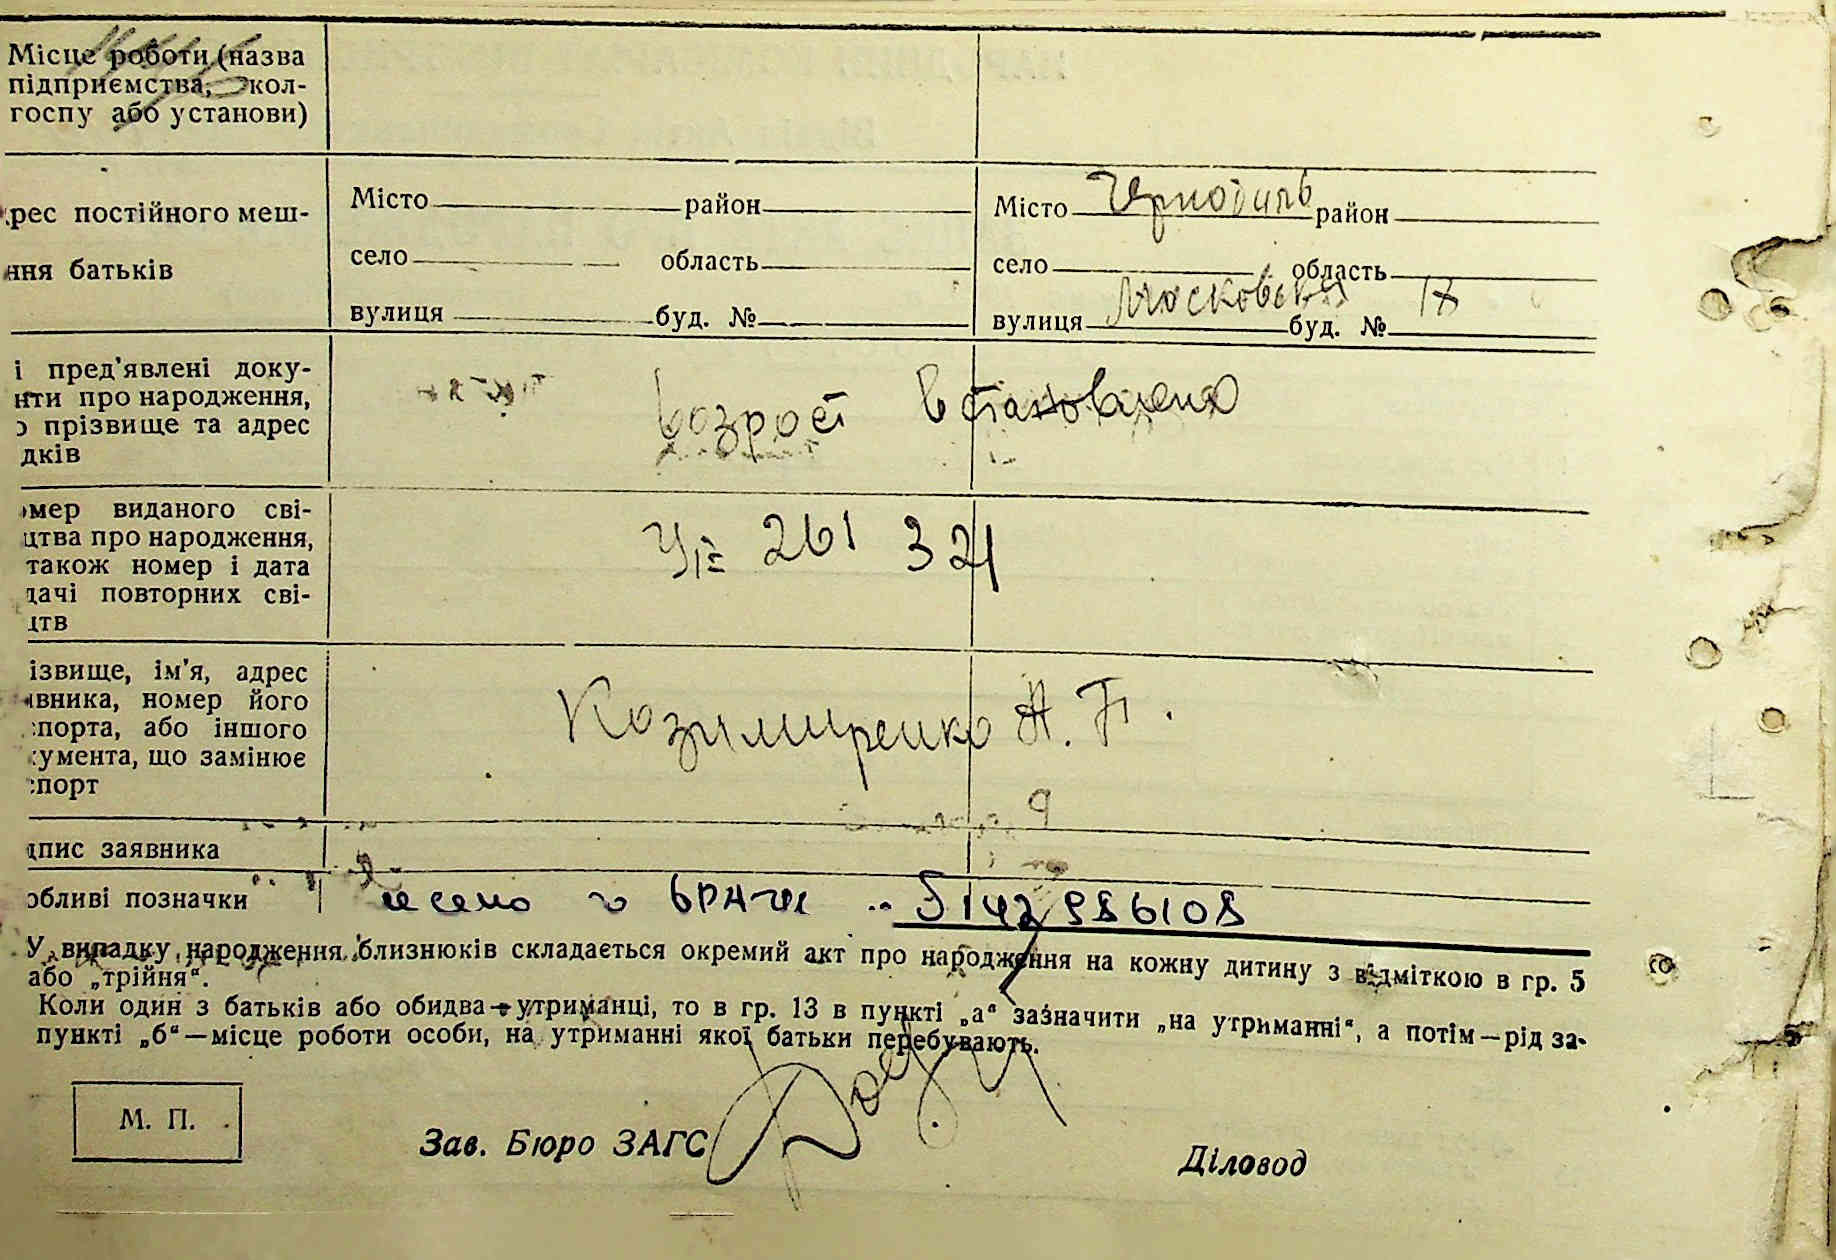 Місце роботи (назва
підприємства, кол-
госпу або установи)
рес постійного меш-
ння батьків
Місто район
село область
вулиця буд. №
Місто Чернобиль район
село область
вулиця Московська буд. № 17
і пред'явлені доку-
нти про народження,
о прізвище та адрес
дків
возрост встановлено
мер виданого сві-
цтва про народження,
також номер і дата
дачі повторних сві-
цтв
261 321
ізвище, ім'я, адрес
явника, номер його
спорта, або іншого
кумента, що замінює
спорт
Козимиренко А. П.
дпис заявника
обливі позначки
5142986108
У випадку народження близнюків складається окремий акт про народження на кожну дитину з відміткою в гр. 5
або „трійня“.
Коли один з батьків або обидва—утриманці, то в гр. 13 в пункті „а“ зазначити „на утриманні“, а потім—рід за-
пункті „б“—місце роботи особи, на утриманні якої батьки перебувають.
М. П.
Зав. Бюро ЗАГС
Діловод